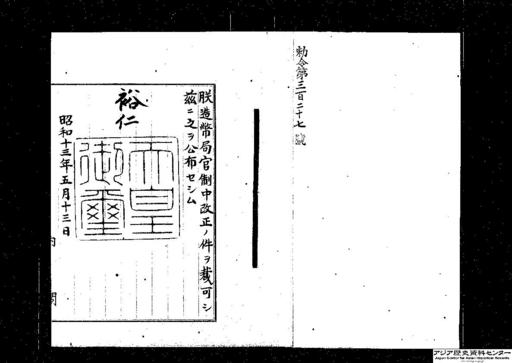 勅令第三百二十七號
朕造幣局官制中改正ノ件ヲ裁可シ
茲ニ之ヲ公布セシム
裕仁
天皇
御璽
昭和十三年五月十三日
内閣
アジア歴史資料センター
Japan Center for Asian Historical Records